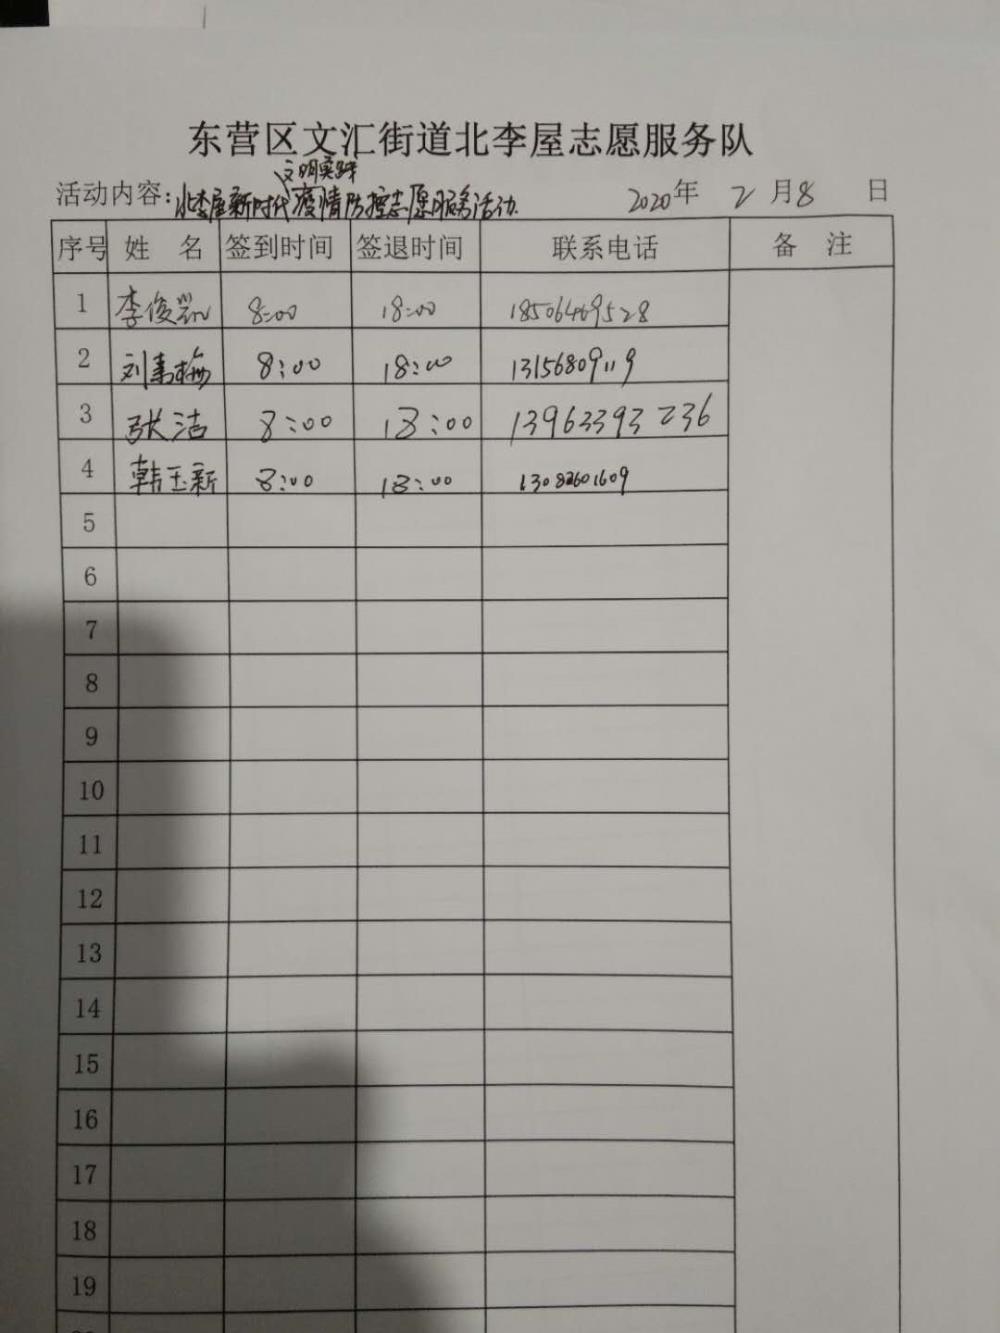 东营区文汇街道北李屋志愿服务队
文明实践
活动内容：北李屋新时代疫情防控志愿服务活动 2020年 2月8 日
序号 姓 名 签到时间 签退时间 联系电话 备 注
1 李俊凯 8:00 18:00 18506469528
2 刘寿梅 8:00 18:00 13156809119
3 张洁 8:00 18:00 13963393236
4 韩玉新 8:00 18:00 13082601609
5
6
7
8
9
10
11
12
13
14
15
16
17
18
19